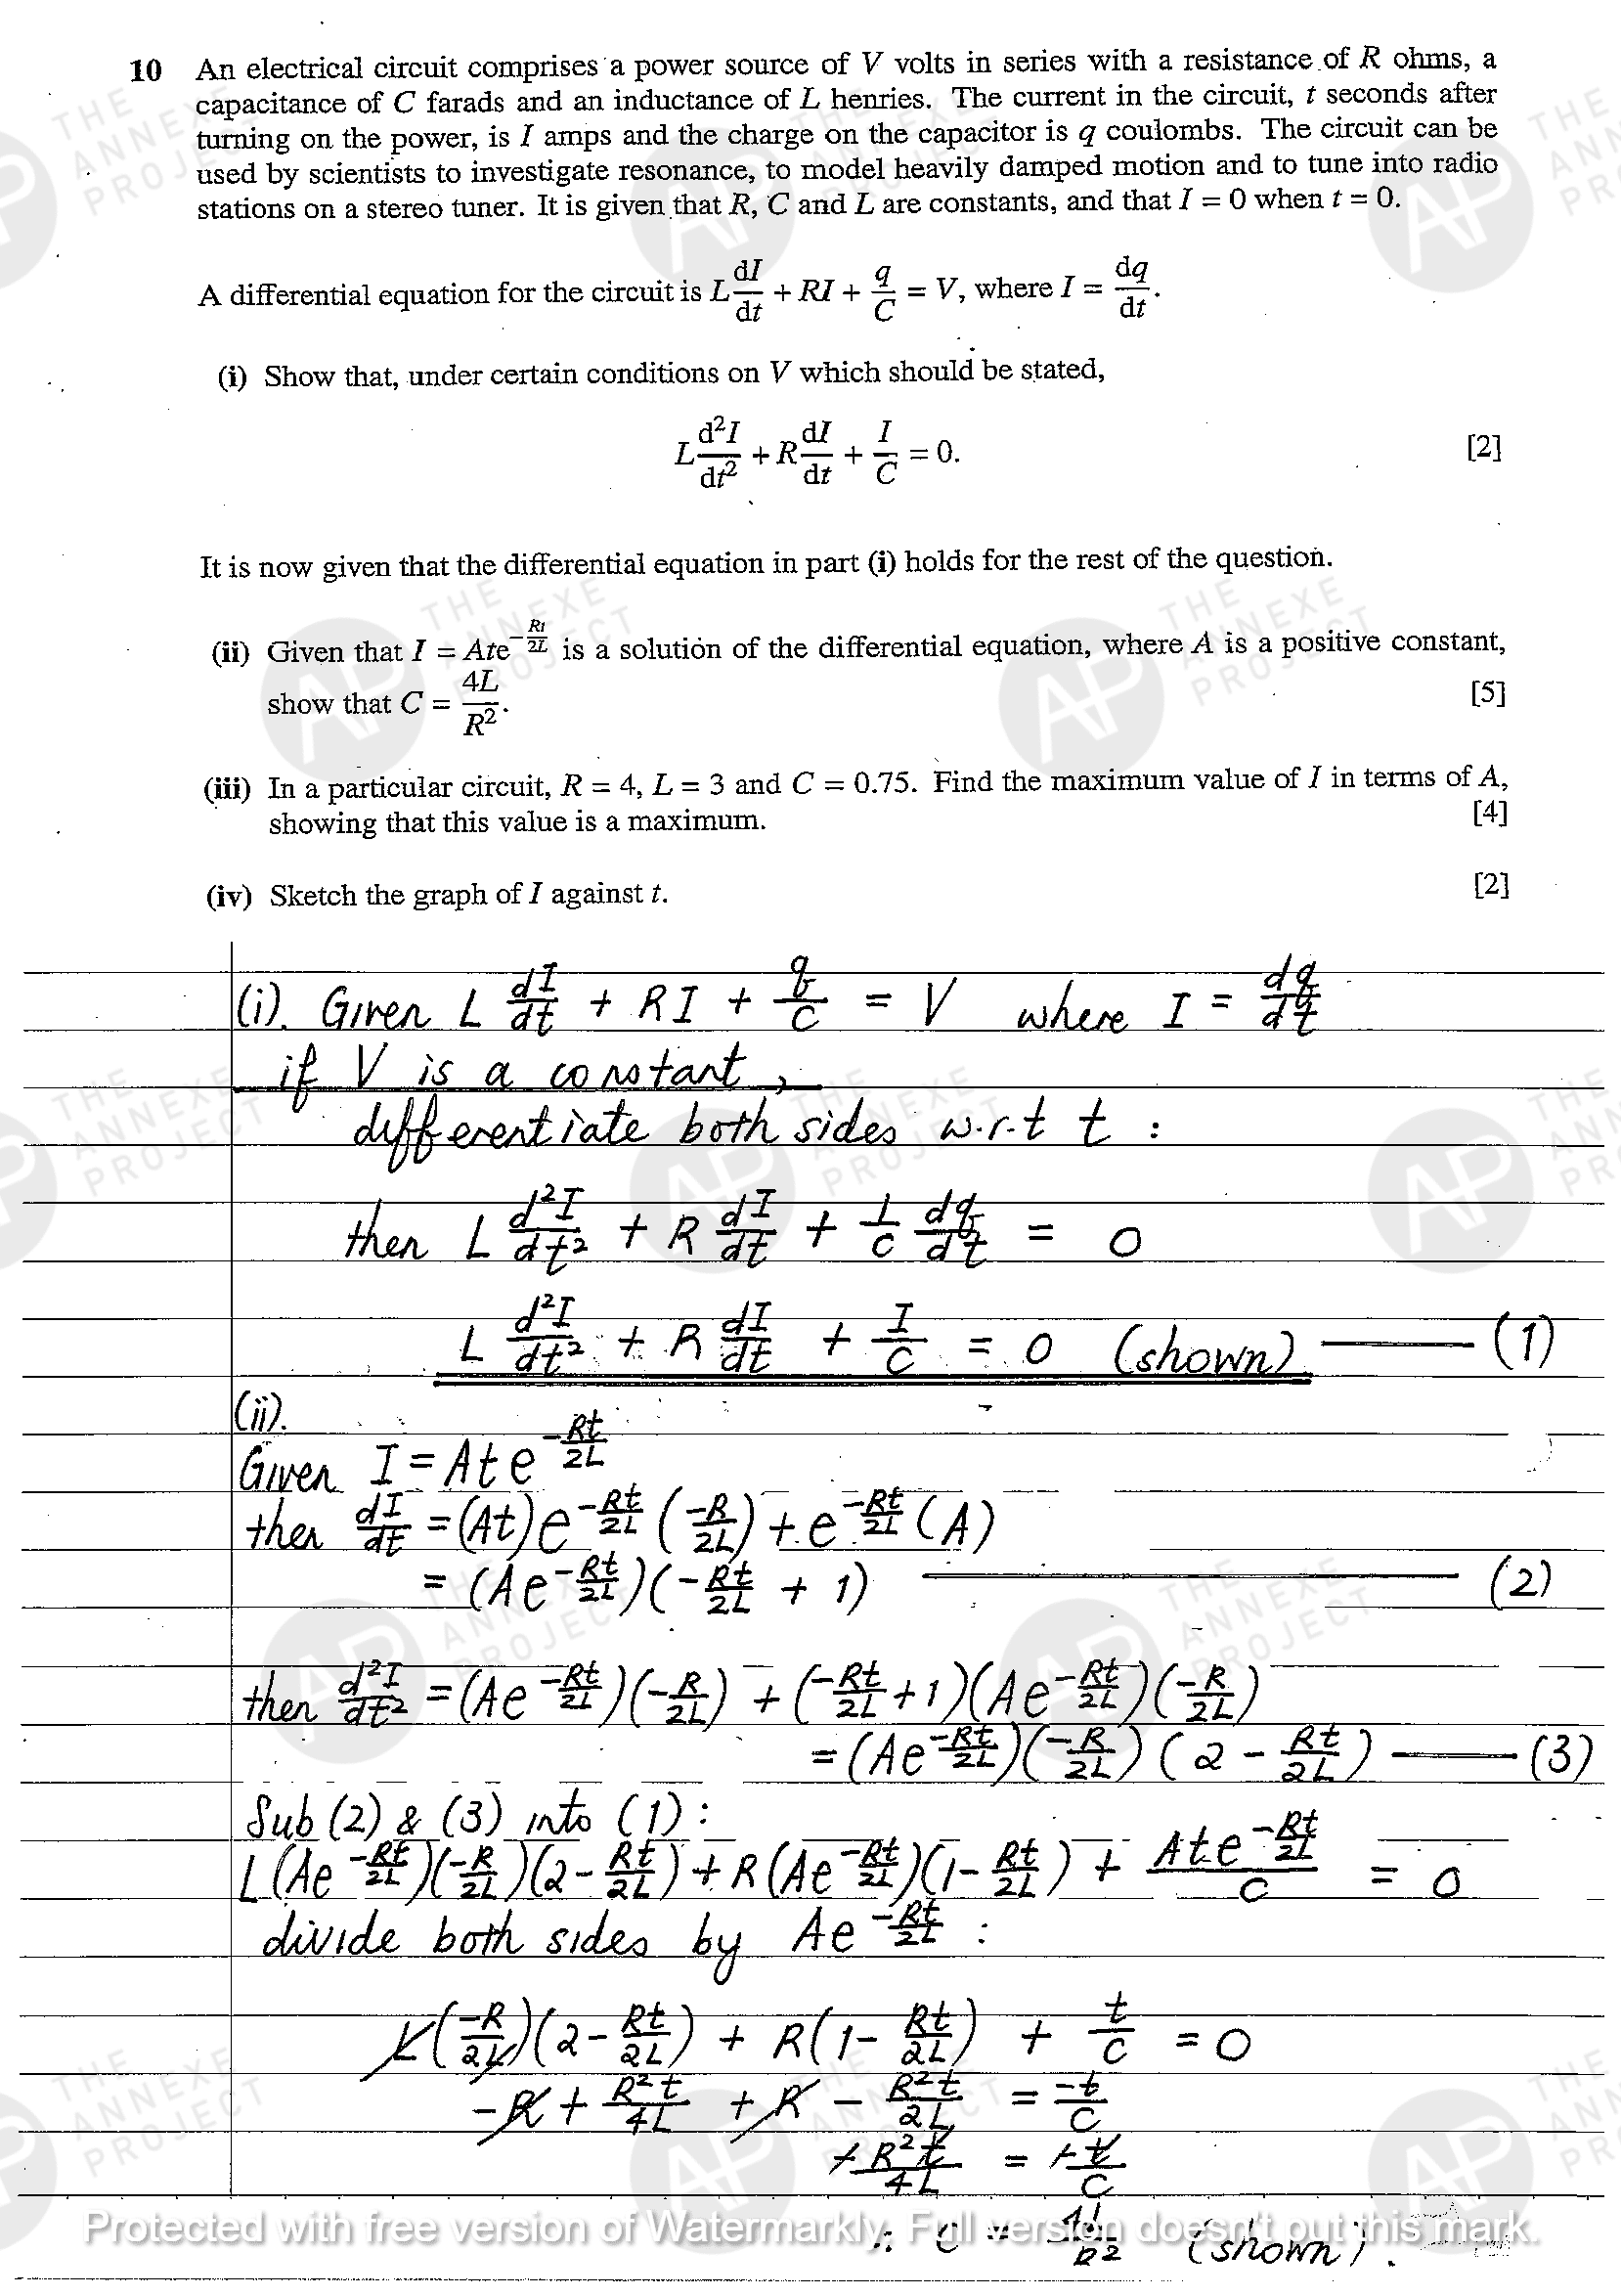 10 An electrical circuit comprises a power source of V volts in series with a resistance of R ohms, a
capacitance of C farads and an inductance of L henries. The current in the circuit, t seconds after
turning on the power, is I amps and the charge on the capacitor is q coulombs. The circuit can be
used by scientists to investigate resonance, to model heavily damped motion and to tune into radio
stations on a stereo tuner. It is given that R, C and L are constants, and that I = 0 when t = 0.
A differential equation for the circuit is L dI/dt + RI + q/C = V, where I = dq/dt.
(i) Show that, under certain conditions on V which should be stated,
L d²I/dt² + R dI/dt + I/C = 0. [2]
It is now given that the differential equation in part (i) holds for the rest of the question.
(ii) Given that I = Ate^(-Rt/2L) is a solution of the differential equation, where A is a positive constant,
show that C = 4L/R². [5]
(iii) In a particular circuit, R = 4, L = 3 and C = 0.75. Find the maximum value of I in terms of A,
showing that this value is a maximum. [4]
(iv) Sketch the graph of I against t. [2]
(i). Given L dI/dt + RI + q/C = V where I = dq/dt
if V is a constant,
differentiate both sides w.r.t t :
then L d²I/dt² + R dI/dt + 1/C dq/dt = 0
L d²I/dt² + R dI/dt + I/C = 0 (shown) —— (1)
(ii).
Given I = Ate^(-Rt/2L)
then dI/dt = (At)e^(-Rt/2L) (-R/2L) + e^(-Rt/2L) (A)
= (Ae^(-Rt/2L))(-Rt/2L + 1) —— (2)
then d²I/dt² = (Ae^(-Rt/2L))(-R/2L) + (-Rt/2L + 1)(Ae^(-Rt/2L))(-R/2L)
= (Ae^(-Rt/2L))(-R/2L)(2 - Rt/2L) —— (3)
Sub (2) & (3) into (1) :
L(Ae^(-Rt/2L))(-R/2L)(2 - Rt/2L) + R(Ae^(-Rt/2L))(1 - Rt/2L) + Ate^(-Rt/2L)/C = 0
divide both sides by Ae^(-Rt/2L) :
L(-R/2L)(2 - Rt/2L) + R(1 - Rt/2L) + t/C = 0
-R + R²t/4L + R - R²t/2L = -t/C
-R²t/4L = -t/C
∴ C = 4L/R² (shown).
THE ANNEXE PROJECT
AP
Protected with free version of Watermarkly. Full version doesn't put this mark.